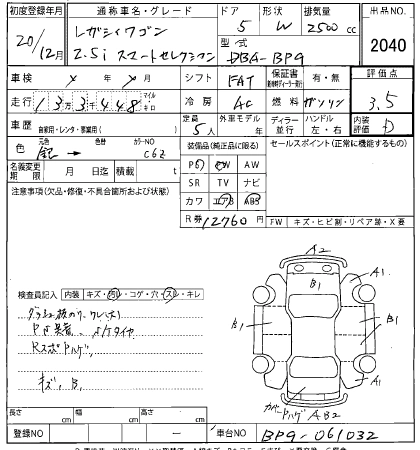 初度登録年月 通称車名・グレード ドア 形状 排気量 出品NO.
20/12月 レガシィワゴン 5 W 2500cc 2040
2.5i スマートセレクション 型式 DBA-BP9
車検 シフト FAT 保証書 有・無 評価点
走行 13万3千448 マイル キロ 冷房 AC 燃料 ガソリン 3,5
車歴 自家用・レンタ・事業用( ) 定員 5人 外車モデル 年 ディーラー 並行 ハンドル 左・右 内装評価 D
色 元色 銀 色替 カラーNO C6Z 装備品(純正品に限る) セールスポイント(正常に機能するもの)
名義変更期限 月 日迄 積載量 t PS PW AW
注意事項(欠品・修復・不具合箇所および状態) SR TV ナビ
カワ エアB ABS
R券 12760円 FW キズ・ヒビ割・リペア跡・X要
A2
検査員記入 内装 キズ・汚レ・コゲ・穴・スレ・キレ B1 A1
B1 B1
RスポPハゲ
キズ、B. A1
カバーPハゲ AB2
長さ cm 幅 cm 高さ cm
登録NO ー 車台NO BP9-061032